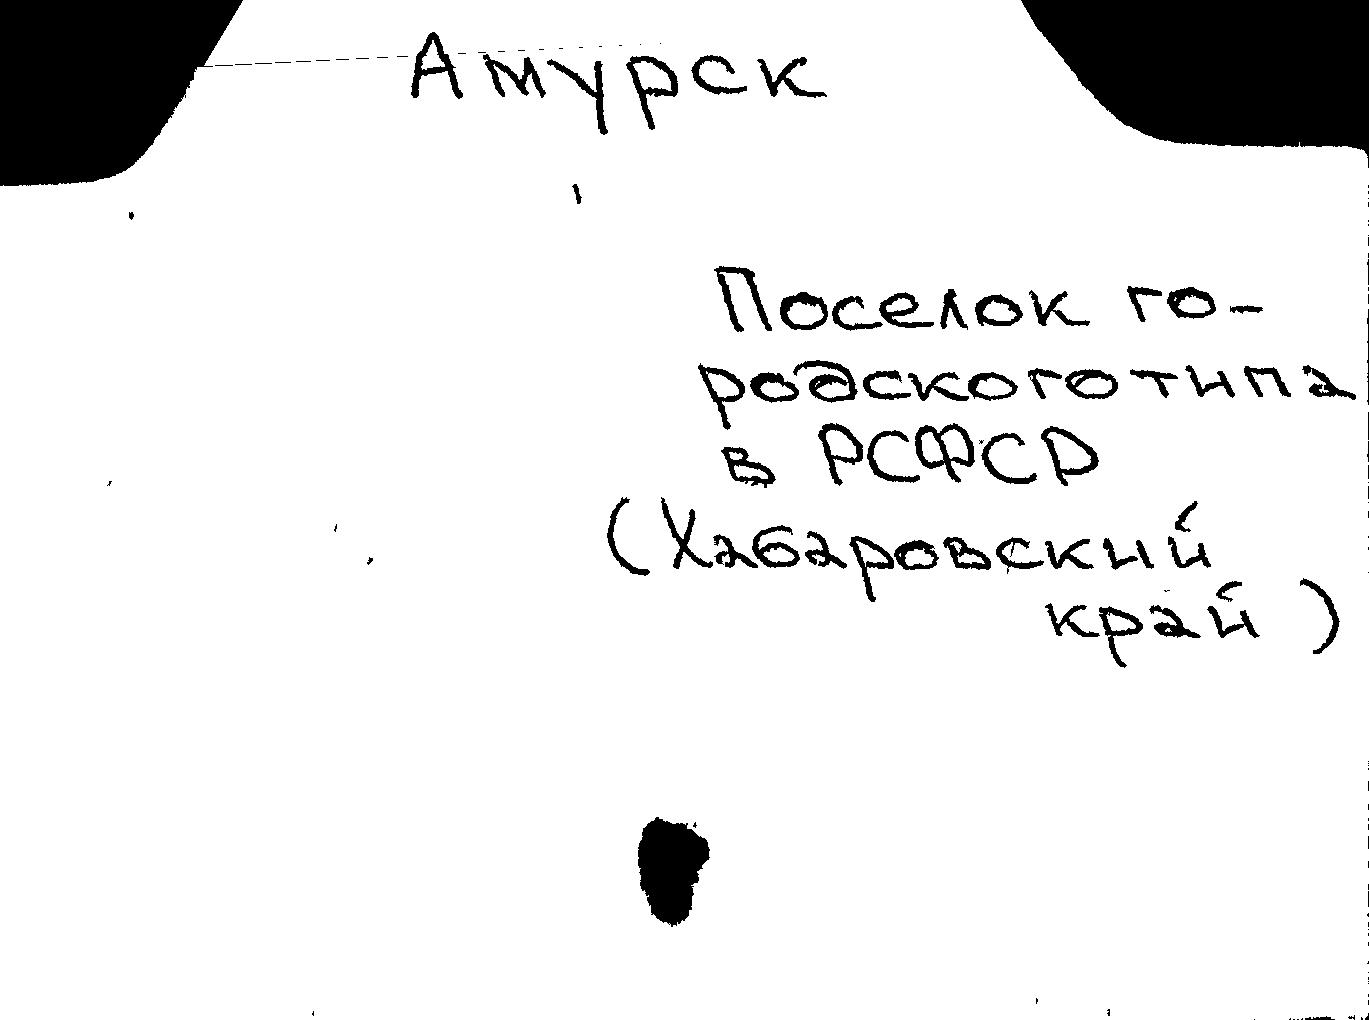 Амурск
Поселок го-
родского типа
в РСФСР
(Хабаровский
край)